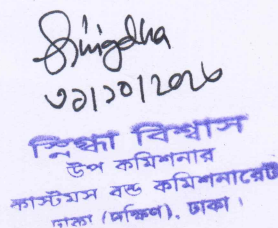 Snigdha
৩১/১০/২০২৩
স্নিগ্ধা বিশ্বাস
উপ কমিশনার
কাস্টমস বন্ড কমিশনারেট
ঢাকা (দক্ষিণ), ঢাকা।